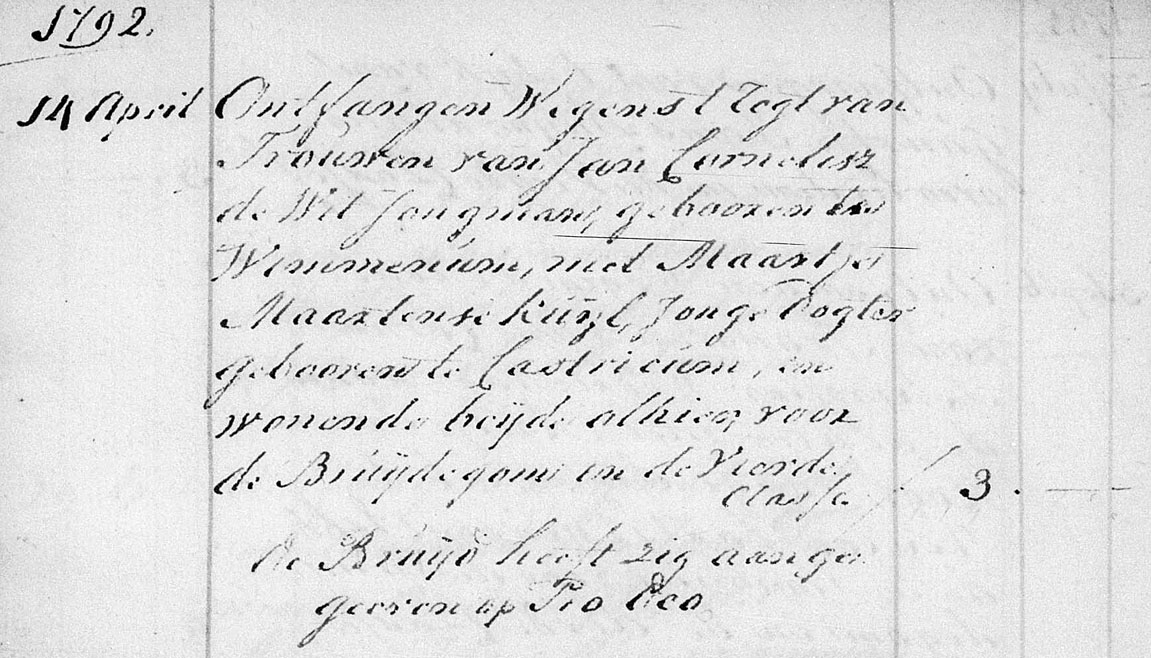 1792.
14 April Ontfangen Wegens t Regt van
Trouwen van Jan Cornelisz
de Wit Jongman, gebooren te
Wimmenum, met Maartje
Maartense Kuijl, Jonge Dogter
gebooren te Castricum, en
wonende beijde alhier, voor
de Bruijdegom in de Vierde
Classe f 3 . —
de Bruijd heeft zig aange
geeven op Pro Deo